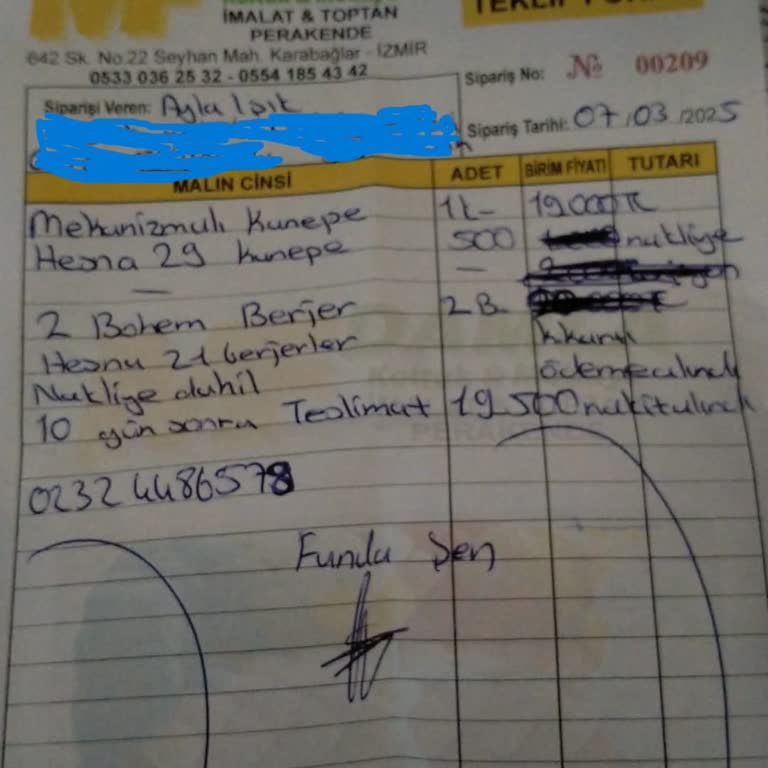 İMALAT & TOPTAN
PERAKENDE
TEKLİF
642 Sk. No:22 Seyhan Mah. Karabağlar - İZMİR
0533 036 25 32 - 0554 185 43 42
Sipariş No: № 00209
Siparişi Veren: Ayla Işık
Sipariş Tarihi: 07/03/2025
MALIN CİNSİ ADET BİRİM FİYATI TUTARI
Mekanizmalı Kanepe 1 19000 TL
Hesna 29 kanepe 500 nakliye
—
2 Bohem Berjer 2
Hesna 21 berjerler
Nakliye dahil ödeme alındı
10 gün sonra Teslimat 19500 nakit alındı
PERAKENDE
0232 4486578
Funda Şen